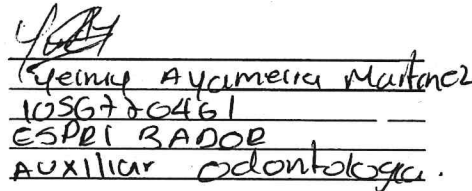 Yeimy Ayameira Martinez
1056770461
ESPRI BADOR
Auxiliar Odontologia.